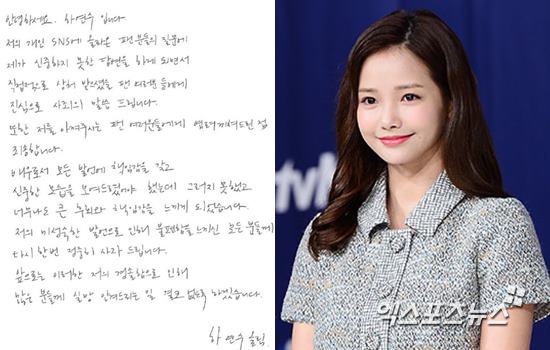 안녕하세요. 하연수 입니다.
저의 개인 SNS에 올라온 팬분들의 질문에
제가 신중하지 못한 답변을 하게 되면서
직접적으로 상처 받으셨을 팬 여러분들에게
진심으로 사죄의 말씀 드립니다.
또한 저를 아껴주시는 팬 여러분들에게 심려 끼쳐드린 점
죄송합니다.
배우로서 모든 발언에 책임감을 갖고
신중한 모습을 보여드렸어야 했는데 그러지 못했고
너무나도 큰 후회와 책임감을 느끼게 되었습니다.
저의 미성숙한 발언으로 인해 불쾌함을 느끼신 모든 분들께
다시 한번 정중히 사과 드립니다.
앞으로는 이러한 저의 경솔함으로 인해
많은 분들께 실망 안겨드리는 일 결코 없도록 하겠습니다.
하연수 올림.
tvN
엑스포츠뉴스